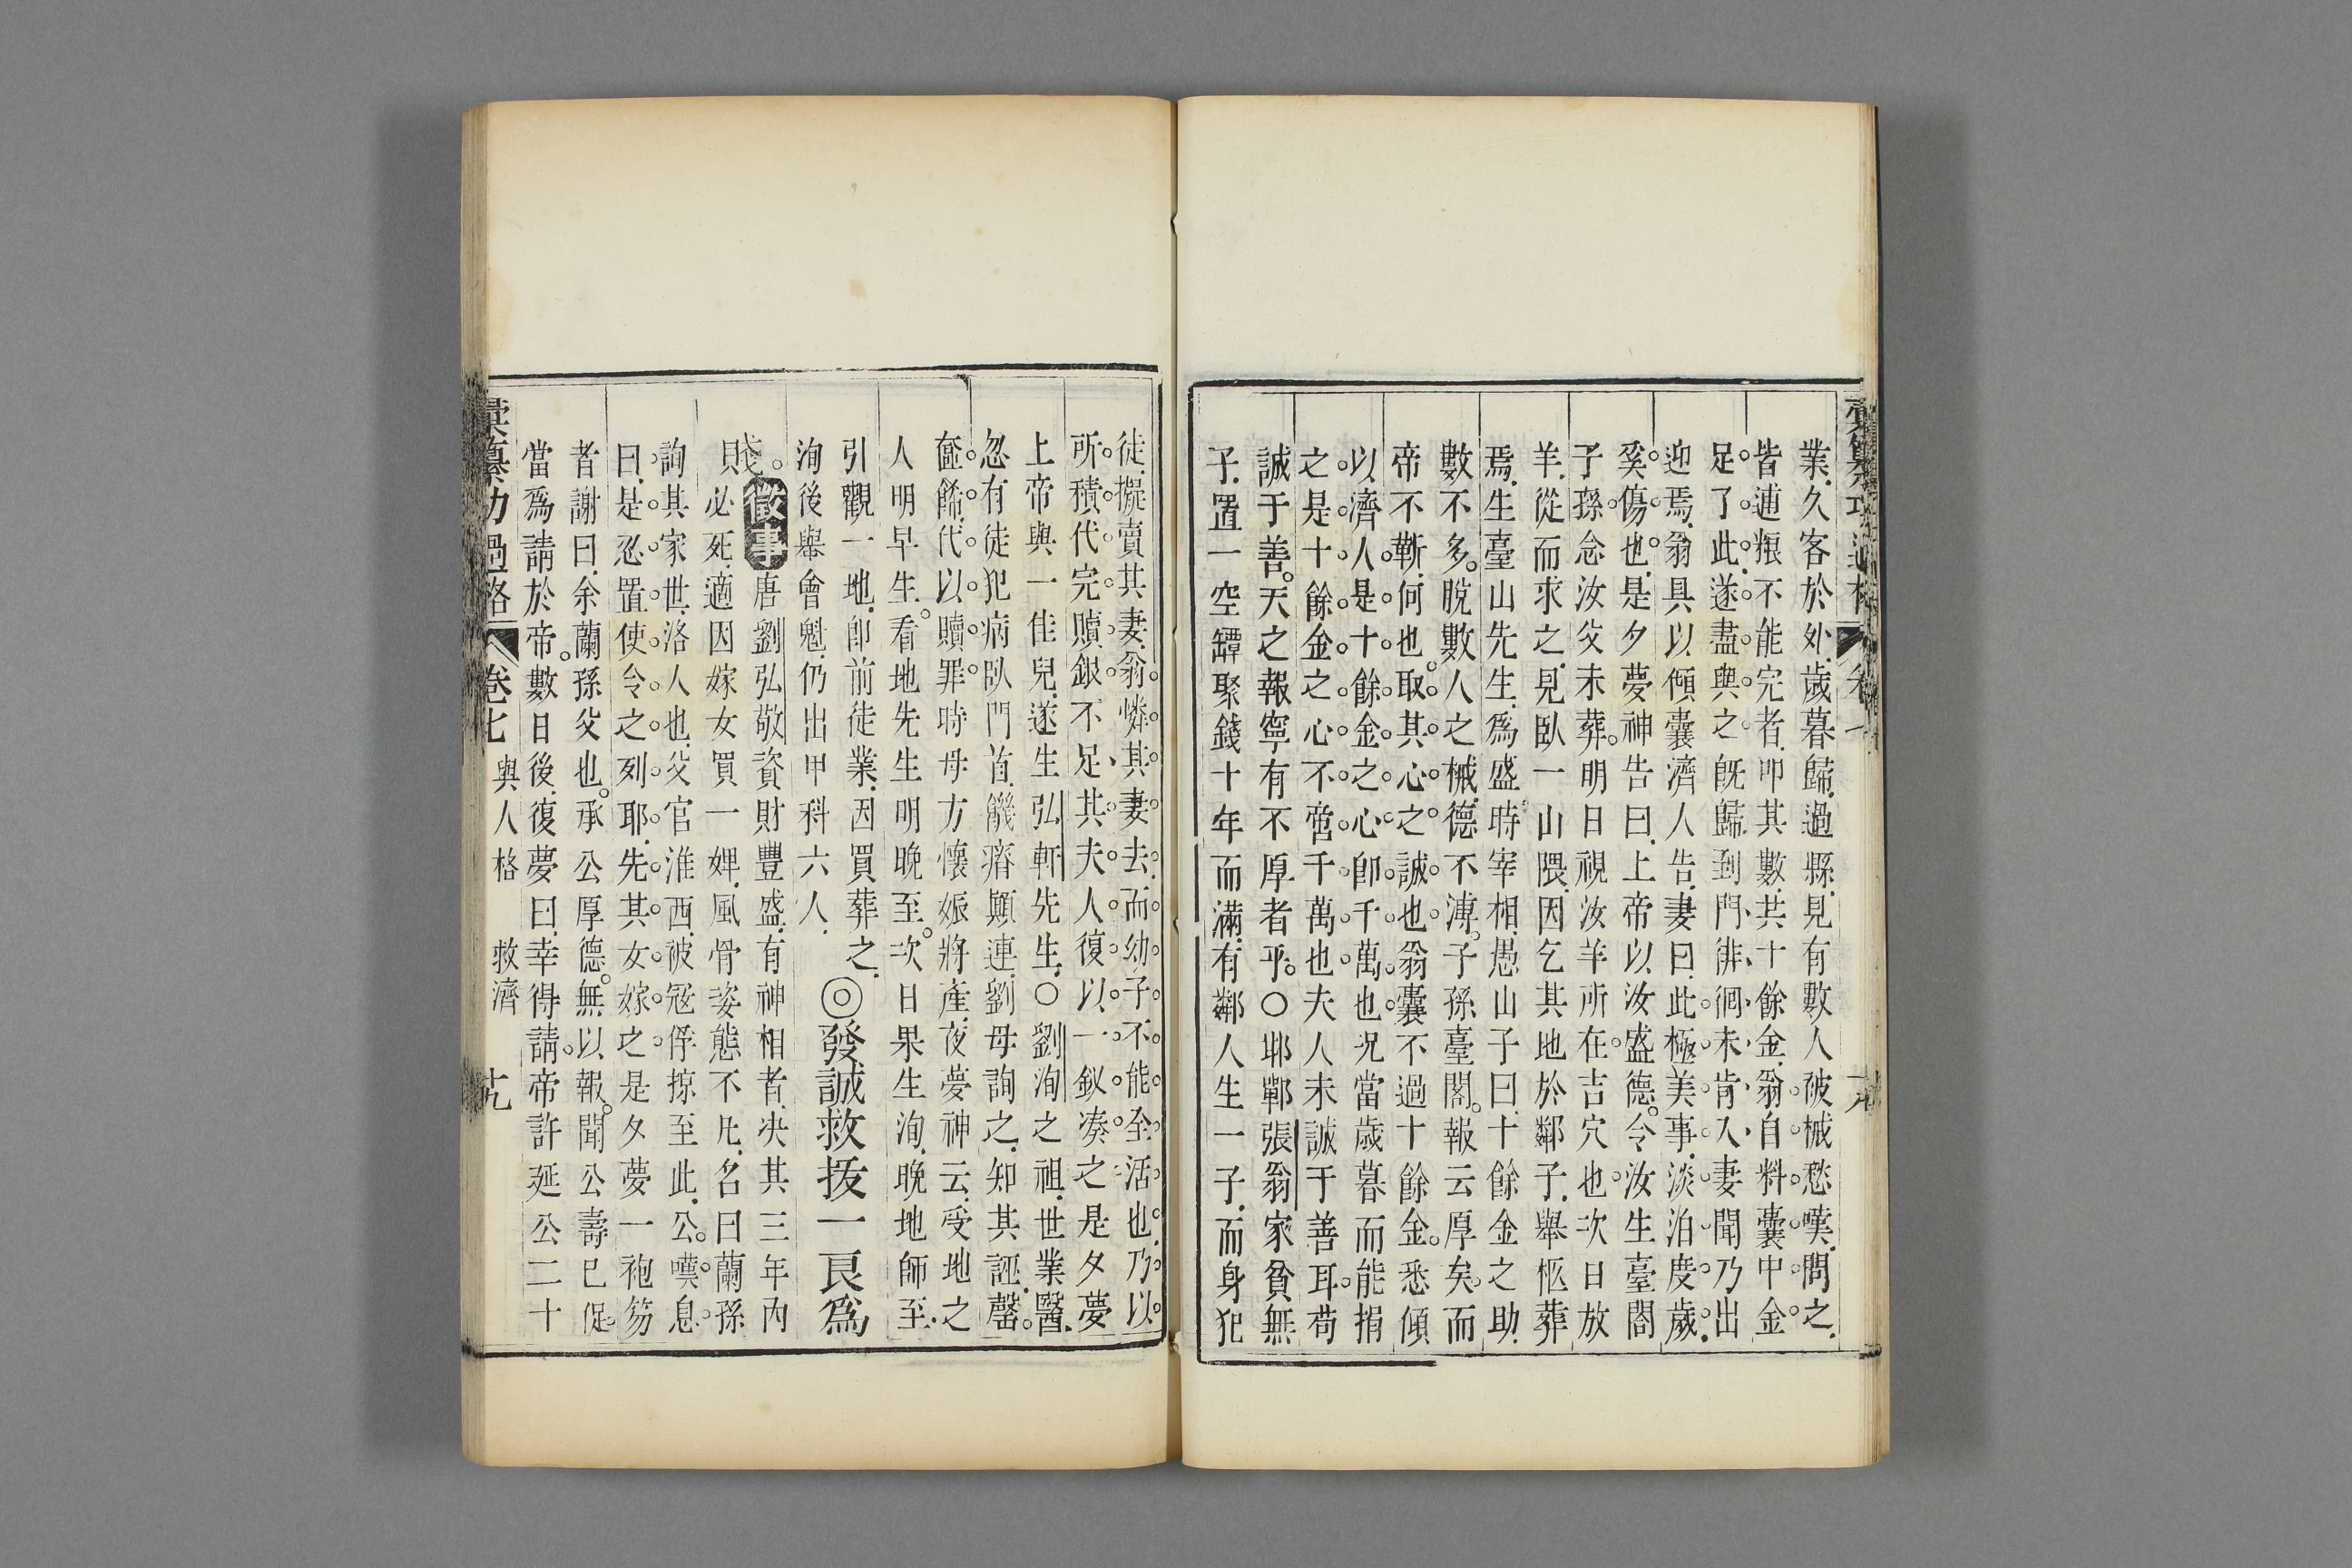 業久客於外歲暮歸過縣見有數人破械愁嘆問之
皆逋粮不能完者叩其數共十餘金翁自料囊中金
足了此遂盡與之既歸到門徘徊未肯入妻聞乃出
迎焉翁具以傾囊濟人告妻曰此極美事淡泊度歲
奚傷也是夕夢神告曰上帝以汝盛德令汝生臺閣
子孫念汝父未葬明日視汝羊所在吉穴也次日放
羊從而求之見臥一山隈因乞其地於鄰子舉柩葬
焉生臺山先生爲盛時宰相愚山子曰十餘金之助
數不多脫數人之械德不溥子孫臺閣報云厚矣而
帝不靳何也取其心之誠也翁囊不過十餘金悉傾
以濟人是十餘金之心卽千萬也況當歲暮而能捐
之是十餘金之心不啻千萬也夫人未誠于善耳苟
誠于善天之報寧有不厚者乎○邯鄲張翁家貧無
子置一空罈聚錢十年而滿有鄰人生一子而身犯
徒擬賣其妻翁憐其妻去而幼子不能全活也乃以
所積代完贖銀不足其夫人復以一釵湊之是夕夢
上帝與一佳兒遂生弘軒先生○劉洵之祖世業醫
忽有徒犯病臥門首饑瘠顚連劉母詢之知其誣罄
奩餙代以贖罪時母方懷娠將產夜夢神云受地之
人明早生看地先生明晚至次日果生洵晚地師至
引觀一地卽前徒業因買葬之◎發誠救拔一良爲
洵後舉會魁仍出甲科六人
賤 徵事 唐劉弘敬資財豐盛有神相者決其三年內
則必死適因嫁女買一婢風骨姿態不凡名曰蘭孫
詢其家世洛人也父官淮西被冦俘掠至此公嘆息
曰是忍置使令之列耶先其女嫁之是夕夢一袍笏
者謝曰余蘭孫父也承公厚德無以報聞公壽已促
當爲請於帝數日後復夢曰幸得請帝許延公二十
彙纂功過格 卷七 與人格 救濟 十九